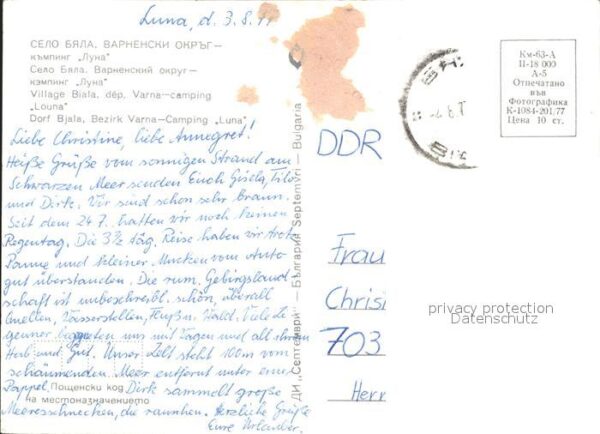 Luna, d. 3.8.77
СЕЛО БЯЛА. ВАРНЕНСКИ ОКРЪГ —
къмпинг „Луна"
Село Бяла. Варненский округ —
кэмпинг „Луна"
Village Biala, dép. Varna—camping
„Louna"
Dorf Bjala, Bezirk Varna—Camping „Luna"
Liebe Christine, liebe Annegret!
Heiße Grüße vom sonnigen Strand am
Schwarzen Meer senden Euch Gisela, Tilo
und Dirk. Wir sind schon sehr braun.
Seit dem 24.7. hatten wir noch keinen
Regentag. Die 3½ täg. Reise haben wir trotz
Panne und kleiner Mucken vom Auto
gut überstanden. Die rum. Gebirgsland-
schaft ist unbeschreibl. schön, überall
Quellen, Wasserstellen, Fluß u. Wald. Viele Zi-
geuner begegneten uns mit Wagen und all ihrem
Hab und Gut. Unser Zelt steht 100m vom
schäumenden Meer entfernt unter einer
Pappel. Dirk sammelt große
Meeresschnecken, die rauschen. Herzliche Grüße
Eure Urlauber.
Пощенски код
на местоназначението
ДИ „Септември" — България Septemvri — Bulgaria
Км-63-А
П-18 000
А-5
Отпечатано
във
Фотографика
К-1084-201,77
Цена 10 ст.
DDR
Frau
Chrisi
703
Herr
privacy protection
Datenschutz